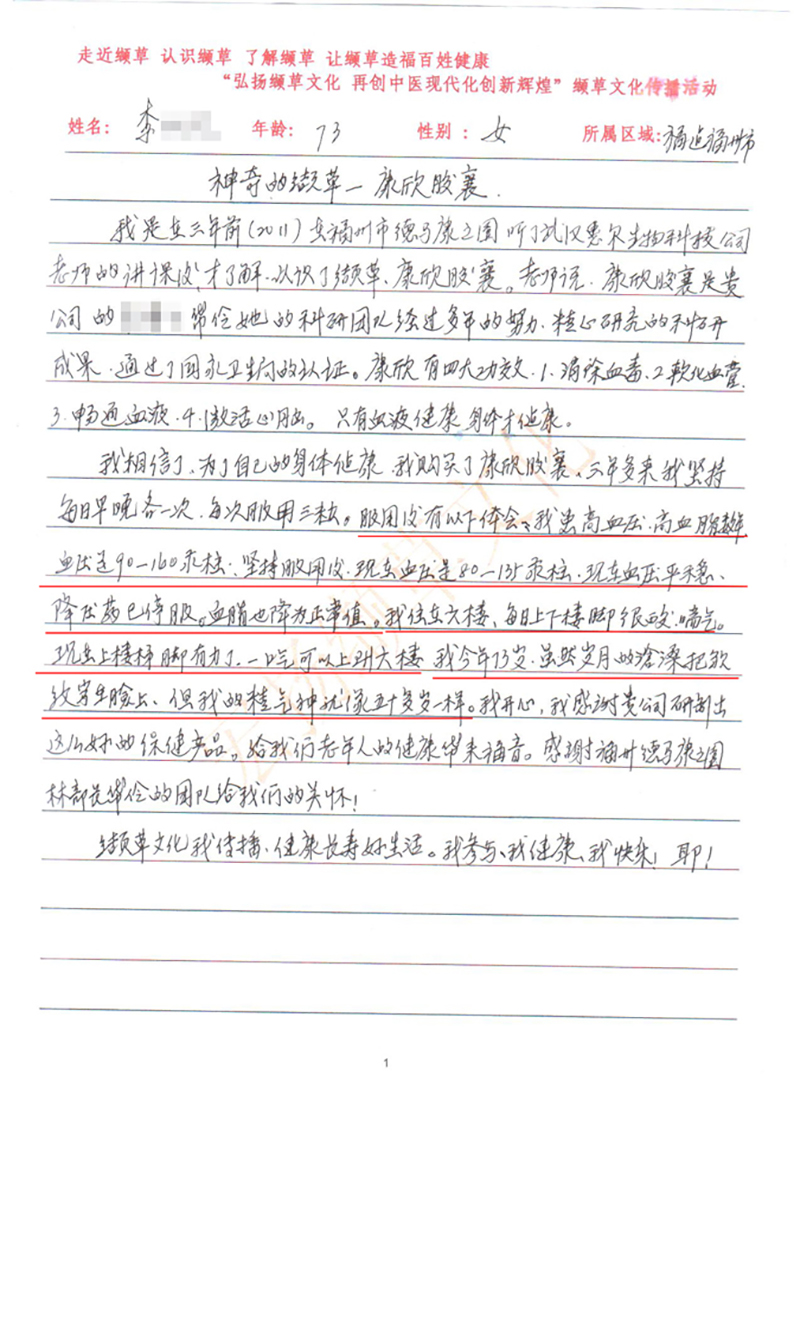 走近缬草 认识缬草 了解缬草 让缬草造福百姓健康
“弘扬缬草文化 再创中医现代化创新辉煌”缬草文化传播活动
姓名: 李 年龄: 73 性别: 女 所属区域: 福建福州市
神奇的缬草—康欣胶囊
我是在三年前(2011)在福州市德马康之园听了武汉惠尔生物科技公司
老师的讲课后,才了解、认识了缬草、康欣胶囊。老师说,康欣胶囊是贵
公司的 带领她的科研团队经过多年的努力、精心研究的科研
成果、通过了国家卫生局的认证。康欣有四大功效、1.消除血毒、2.软化血管、
3.畅通血液、4.激活心脑。只有血液健康身体才健康。
我相信了、为了自己的身体健康、我购买了康欣胶囊、三年多来我坚持
每日早晚各一次、每次服用三粒。服用后有以下体会、我患高血压、高血脂数年、
血压是90—160汞柱、坚持服用后、现在血压是80—135汞柱、现在血压平稳、
降压药已停服。血脂也降为正常值。我住在六楼、每日上下楼脚很酸、喘气。
现在上楼梯脚有力了、一口气可以上到六楼 我今年73岁、虽然岁月的沧桑把皱
纹写在脸上、但我的精气神就像五十多岁一样。我开心,我感谢贵公司研制出
这么好的保健产品。给我们老年人的健康带来福音。感谢福州德马康之园
林部长带领的团队给我们的关怀!
缬草文化我传播、健康长寿好生活。我参与、我健康、我快乐! 耶!
弘扬缬草文化
1